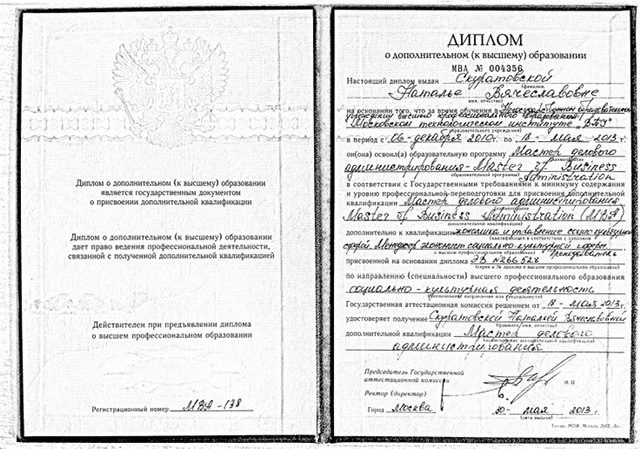 Диплом о дополнительном (к высшему) образовании
является государственным документом
о присвоении дополнительной квалификации
Диплом о дополнительном (к высшему) образовании
дает право ведения профессиональной деятельности,
связанной с полученной дополнительной квалификацией
Действителен при предъявлении диплома
о высшем профессиональном образовании
Регистрационный номер МВА-138
ДИПЛОМ
о дополнительном (к высшему) образовании
МВА № 004356
Настоящий диплом выдан Скуратовской
(фамилия,
Наталье Вячеславовне
имя, отчество)
на основании того, что за время обучения в Негосударственном образовательном
учреждении высшего профессионального образования
Московском технологическом институте "ВТУ"
(образовательного учреждения)
в период с 06 декабря 2010 г. по 18 мая 2013 г.
он(она) освоил(а) образовательную программу Мастер делового
администрирования - Master of Business
Administration
в соответствии с Государственными требованиями к минимуму содержания
и уровню профессиональной переподготовки для присвоения дополнительной
квалификации Мастер делового администрирования
Master of Business Administration (MBA)
дополнительно к квалификации экономика и управление социокультурной
сферой. Менеджер социально-культурной сферы.
присвоенной на основании диплома
по направлению (специальности) высшего профессионального образования
социально-культурная деятельность
Государственная аттестационная комиссия решением от 18 мая 2013 г.
удостоверяет получение Скуратовской Натальей Вячеславовной
дополнительной квалификации Мастер делового
администрирования
Председатель Государственной
аттестационной комиссии
М.П.
Ректор (директор)
Город Москва 30 мая 2013 г.